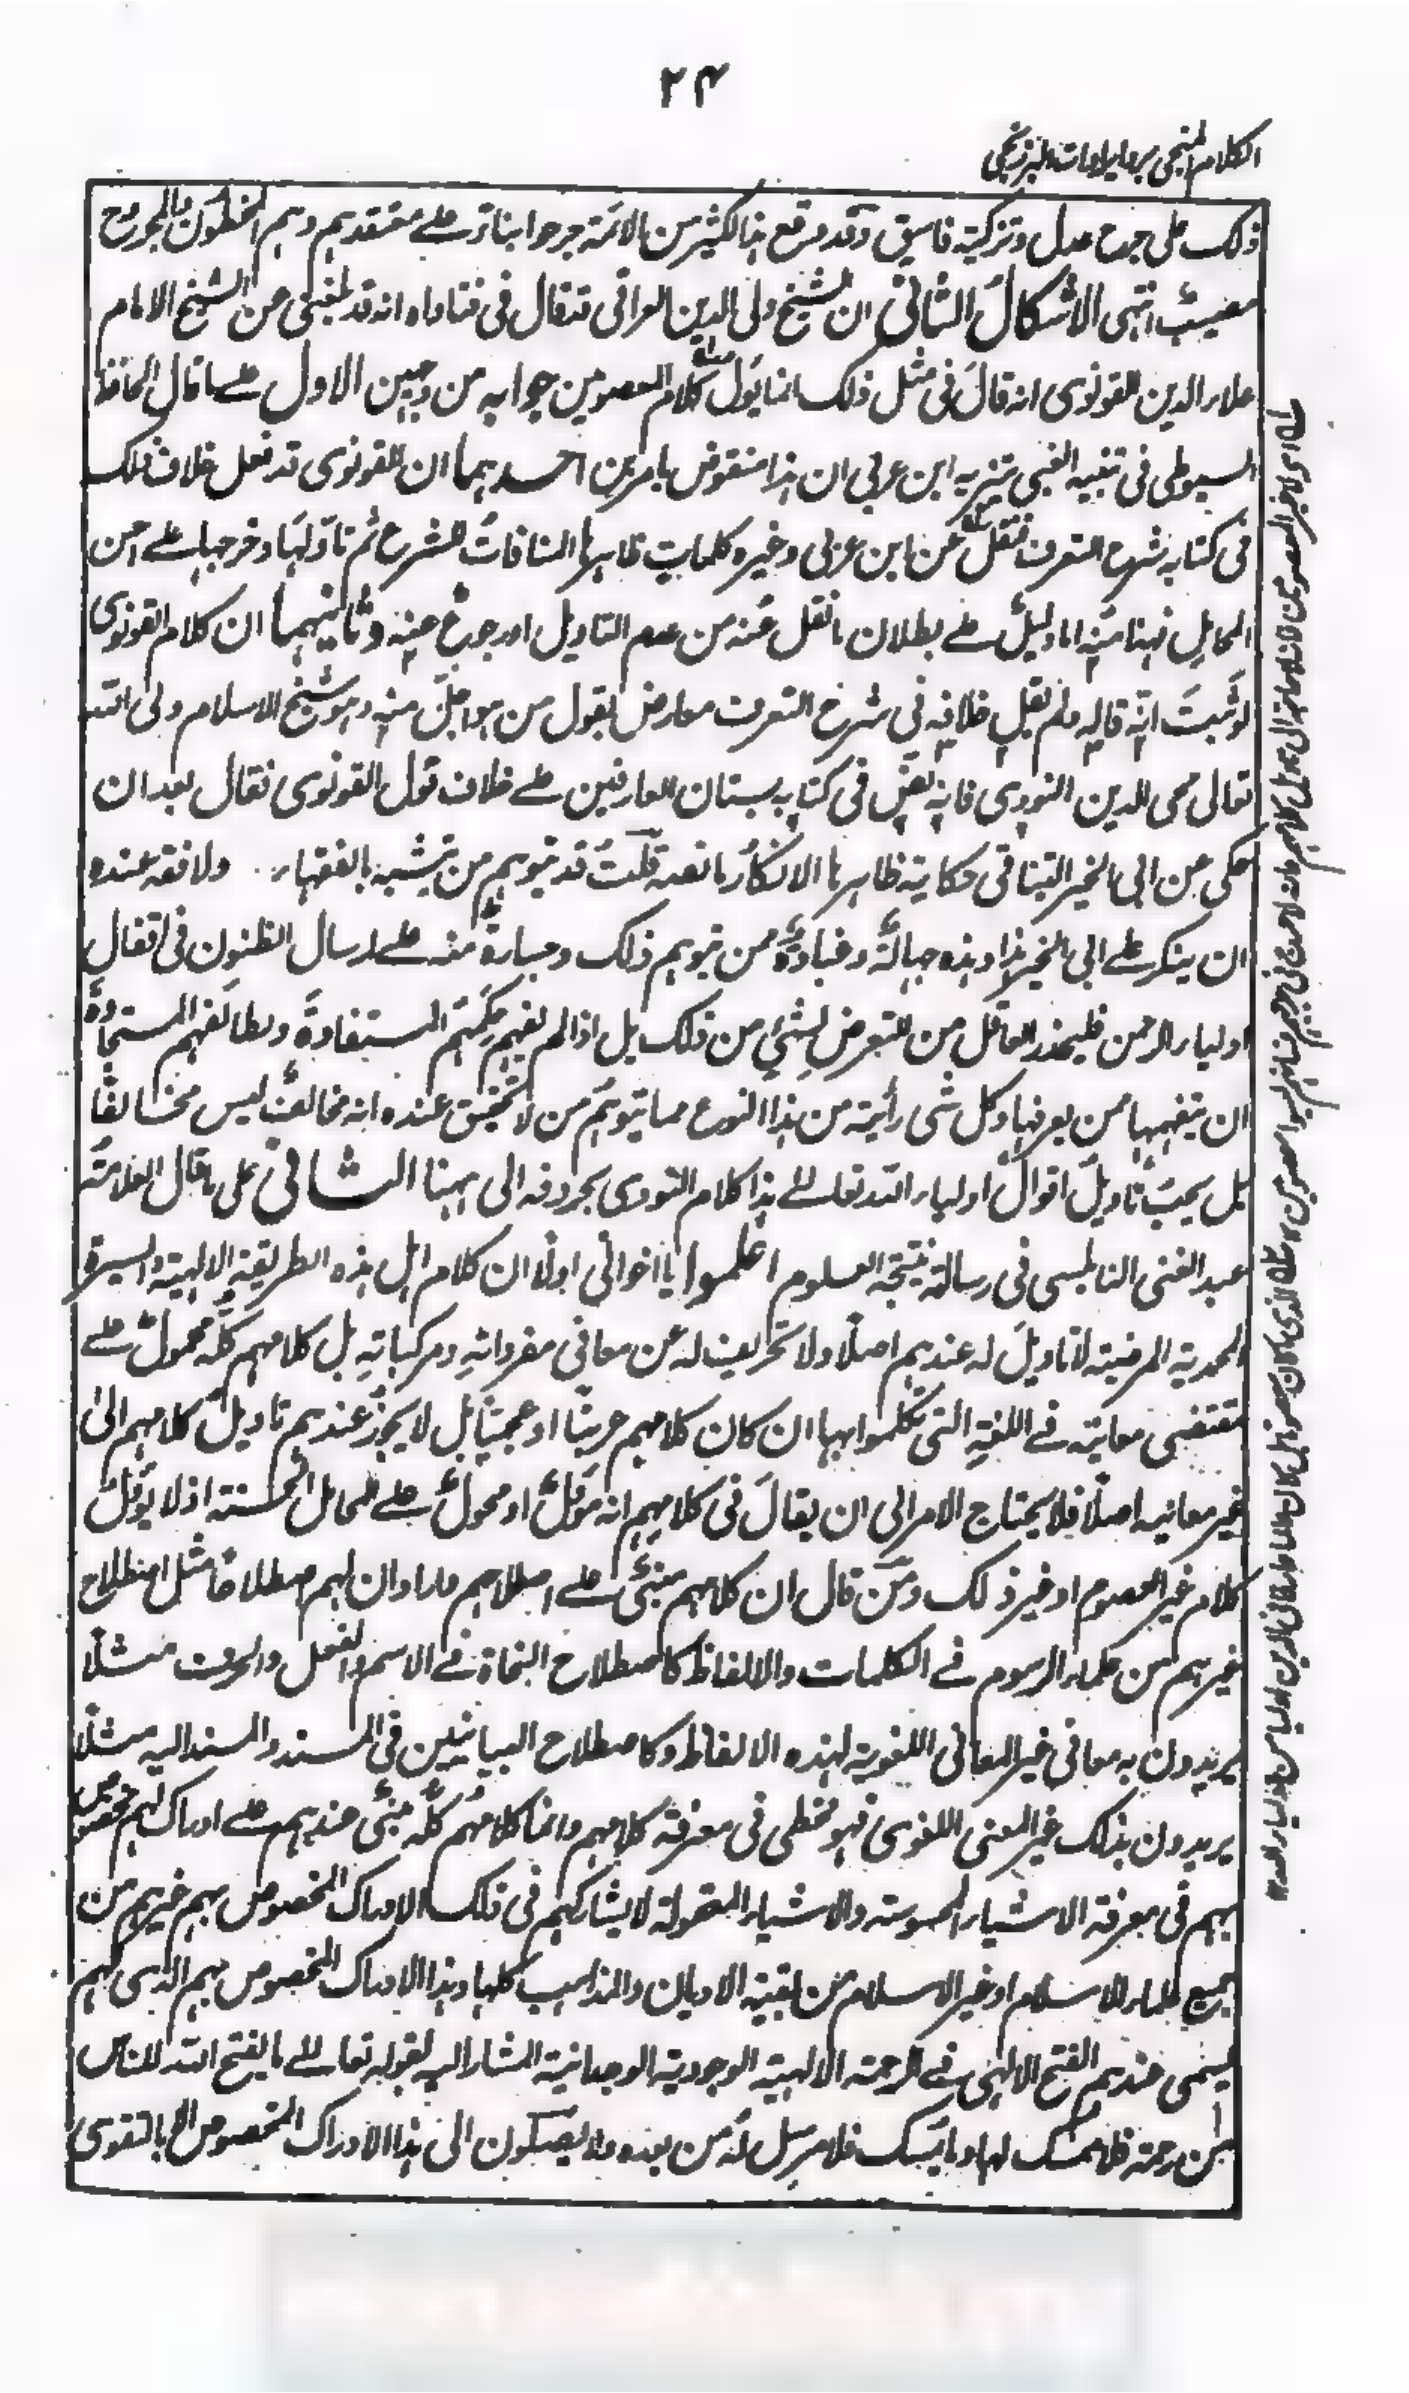 ۲۴
الكلام المنجى برد ايرادات البرزنجى
ذلك على جرح عدل وتزكية فاسق وقد وقع هذا لكثير من الائمة جرحوا بناء على معتقدهم وهم المخطئون والمجروح
مصيب انتهى الاشكال الثانى ان الشيخ ولى الدين العراقى قد قال فى فتاواه انه قد بلغنى عن الشيخ الامام
علاء الدين القونوى انه قال فى مثل ذلك انما يؤل كلام المعصومين جوابه من وجهين الاول على ما قال الحافظ
السيوطى فى تنبيه الغبى بتنزيه ابن عربى ان هذا منقوض بامرين احدهما ان القونوى قد فعل خلاف ذلك
فى كتابه شرح التعرف فنقل عن ابن عربى وغيره كلمات ظاهرها المنافات للشرع ثم تاولها وخرجها على احسن
المحامل فهذا منه اما دليل على بطلان ما نقل عنه من عدم التاويل او رجوع عنه وثانيهما ان كلام القونوى
لو ثبت انه قاله ولم يقل خلافه فى شرح التعرف معارض بقول من هو اجل منه وهو شيخ الاسلام ولى الله
تعالى محى الدين النووى فانه نص فى كتابه بستان العارفين على خلاف قول القونوى فقال بعد ان
حكى عن ابى الخير التيناتى حكاية ظاهرها الانكار ما نصه قلت قد يتوهم من يتشبه بالفقهاء ولا فقه عنده
ان ينكر على ابى الخير هذا وهذه جهالة وغباوة ممن يتوهم ذلك وجسارة منه على ارسال الظنون فى افعال
اولياء الرحمن فليحذر العاقل من التعرض لشئ من ذلك بل اذا لم يفهم حكمتهم المستفادة ولطائفهم المستجادة
ان يتفهمها ممن يعرفها وكل شئ رأيته من هذا النوع مما يتوهم من لا تحقيق عنده انه مخالف ليس مخالفا
بل يجب تاويل اقوال اولياء الله تعالى هذا كلام النووى بحروفه الى ههنا الثانى على ما قال العلامة
عبد الغنى النابلسى فى رسالة نتيجة العلوم اعلموا يا اخوانى اولا ان كلام اهل هذه الطريقة الالهية والسيرة
المحمدية المرضية لا تاويل له عندهم اصلا ولا تحريف له عن معانى مفرداته ومركباته بل كلامهم كله محمول على
مقتضى معانيه فى اللغة التى تكلموا بها ان كان كلامهم عربيا او عجميا بل لا يجوز عندهم تاويل كلامهم الى
غير معانيه اصلا فلا يحتاج الامر الى ان يقال فى كلامهم انه مؤل او محمول على محامل الحسنة اذ لا يؤل
كلام غير المعصوم او غير ذلك ومن قال ان كلامهم مبنى على اصطلاحهم واراد ان لهم اصطلاحا مثل اصطلاح
غيرهم من علماء الرسوم فى الكلمات والالفاظ كاصطلاح النحاة فى الاسم والفعل والحروف مثلا
يريدون به معانى غير المعانى اللغوية لهذه الالفاظ وكاصطلاح البيانيين فى المسند والمسند اليه مثلا
يريدون بذلك غير المعنى اللغوى فهو مخطى فى معرفة كلامهم وانما كلامهم كله مبنى عندهم على ادراك لهم مخصوص
بهم فى معرفة الاشياء المحسوسة والاشياء المعقولة لا يشاركهم فى ذلك الادراك المخصوص بهم غيرهم من
جميع علماء الاسلام او غير الاسلام من بقية الاديان والمذاهب كلها وهذا الادراك المخصوص بهم الذى لهم
يسمى عندهم الفتح الالهى فى الرحمة الالهية الوجودية الوجدانية المشار اليه بقوله تعالى ما يفتح الله للناس
من رحمة فلا ممسك لها وما يمسك فلا مرسل له من بعده ولا يصلون الى هذا الادراك المخصوص الا بالتقوى